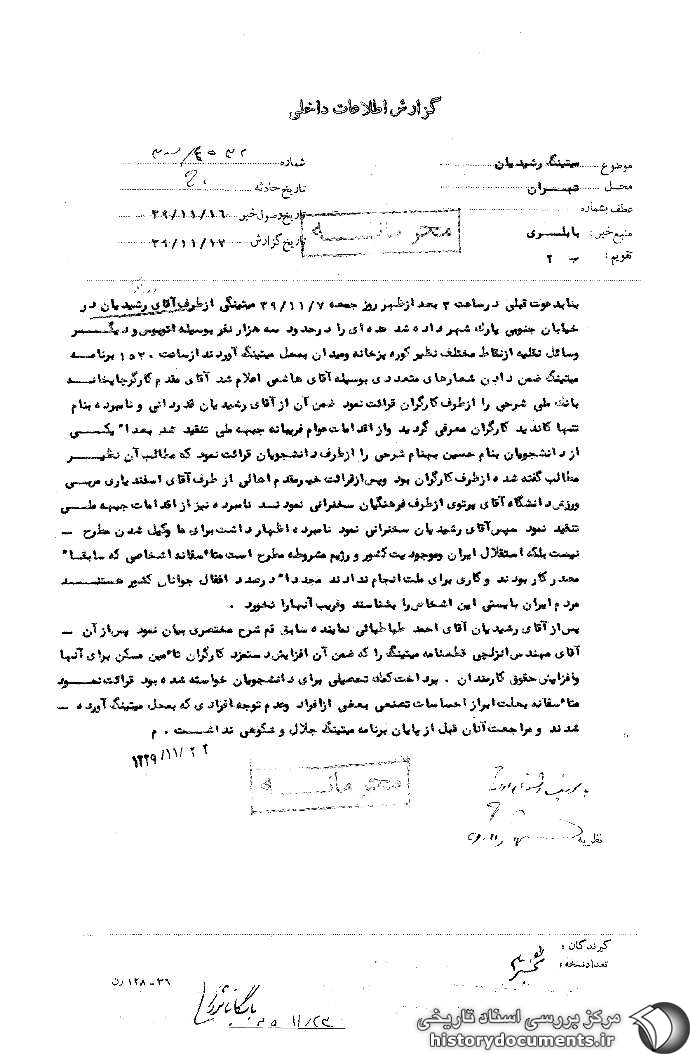 گزارش اطلاعات داخلی
موضوع میتینگ رشیدیان
شماره
محل تهران
تاریخ حادثه
عطف بشماره
تاریخ وصول خبر ۳۹/۱۱/۱۶
منبع خبر: بابلسری
تاریخ گزارش ۳۹/۱۱/۱۷
محرمانه
تقویم: ب ۲
بنا بدعوت قبلی در ساعت ۳ بعد از ظهر روز جمعه ۳۹/۱۱/۷ میتینگی از طرف آقای رشیدیان در
خیابان جنوبی پارک شهر داده شد عده ای را در حدود سه هزار نفر بوسیله اتوبوس و دیگر
وسائل نقلیه از نقاط مختلف نظیر کوره پزخانه و میدان بمحل میتینگ آوردند از ساعت ۱۵۳۰ برنامه
میتینگ ضمن دادن شعارهای متعددی بوسیله آقای هاشمی اعلام شد آقای مقدم کارگر چاپخانه
بانک ملی شرحی را از طرف کارگران قرائت نمود ضمن آن از آقای رشیدیان قدردانی و نامبرده بنام
تنها کاندید کارگران معرفی گردید و از اقدامات عوام فریبانه جبهه ملی تنقید شد بعداً یکی
از دانشجویان بنام حسین بهنام شرحی را از طرف دانشجویان قرائت نمود که مطالب آن نظیر
مطالب گفته شده از طرف کارگران بود وپس از قرائت خیرمقدم اهالی از طرف آقای اسفندیاری مربی
ورزش دانشگاه آقای پرتوی از طرف فرهنگیان سخنرانی نمودند نامبرده نیز از اقدامات جبهه ملی
تنقید نمود سپس آقای رشیدیان سخنرانی نمود نامبرده اظهار داشت برای ما وکیل شدن مطرح –
نیست بلکه استقلال ایران وموجودیت کشور و رژیم مشروطه مطرح است متأسفانه اشخاصی که سابقاً
مصدر کار بودند و کاری برای ملت انجام ندادند مجدداً در صدد اغفال جوانان کشور هستند
مردم ایران بایستی این اشخاص را بشناسند وفریب آنها را نخورد .
پس از آقای رشیدیان آقای احمد طباطبائی نماینده سابق قم شرح مختصری بیان نمود پس از آن –
آقای مهندس انزلچی قطعنامه میتینگ را که ضمن آن افزایش دستمزد کارگران تأمین مسکن برای آنها
وافزایش حقوق کارمندان . پرداخت کمک تحصیلی برای دانشجویان خواسته شده بود قرائت نمود
متأسفانه بعلت ابراز احساسات تصنعی بعضی از افراد وعدم توجه افرادی که بمحل میتینگ آورده –
شدند و مراجعت آنان قبل از پایان برنامه میتینگ جلال و شکوهی نداشت . م
۱۳۳۹/۱۱/۲۲
محرمانه
نظریه
گیرندگان :
تعداد نسخه :
۳۶ – ۱۲۸ رن
بایگانی شود
۱۱/۲۳
مرکز بررسی اسناد تاریخی
historydocuments.ir